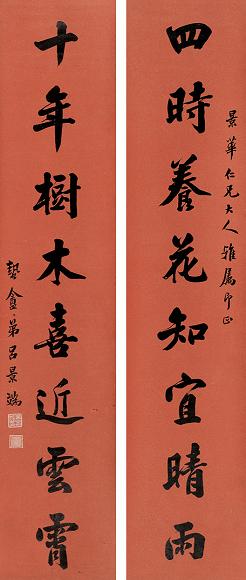 景華仁兄大人雅屬即正
四時養花知宜晴雨
十年樹木喜近雲霄
蟄盦弟呂景端